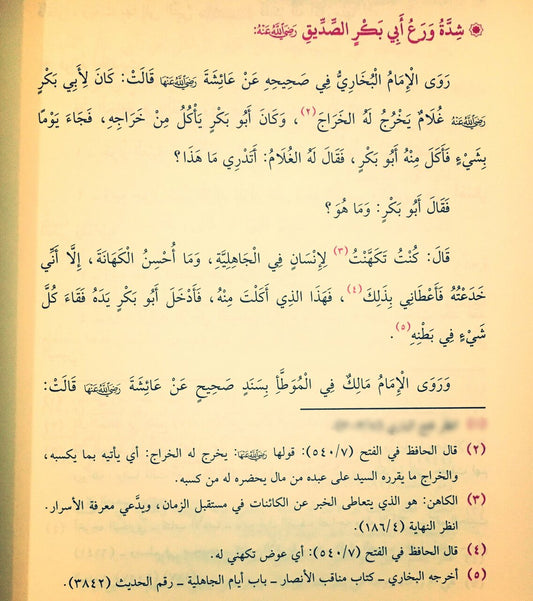 شِدَّةُ وَرَعِ أَبِي بَكْرٍ الصِّدِّيقِ رَضِيَ اللَّهُ عَنْهُ:
رَوَى الْإِمَامُ الْبُخَارِيُّ فِي صَحِيحِهِ عَنْ عَائِشَةَ رَضِيَ اللَّهُ عَنْهَا قَالَتْ: كَانَ لِأَبِي بَكْرٍ
رَضِيَ اللَّهُ عَنْهُ غُلَامٌ يَخْرُجُ لَهُ الْخَرَاجَ (٢)، وَكَانَ أَبُو بَكْرٍ يَأْكُلُ مِنْ خَرَاجِهِ، فَجَاءَ يَوْمًا
بِشَيْءٍ فَأَكَلَ مِنْهُ أَبُو بَكْرٍ، فَقَالَ لَهُ الْغُلَامُ: أَتَدْرِي مَا هَذَا؟
فَقَالَ أَبُو بَكْرٍ: وَمَا هُوَ؟
قَالَ: كُنْتُ تَكَهَّنْتُ (٣) لِإِنْسَانٍ فِي الْجَاهِلِيَّةِ، وَمَا أُحْسِنُ الْكَهَانَةَ، إِلَّا أَنِّي
خَدَعْتُهُ فَأَعْطَانِي بِذَلِكَ (٤)، فَهَذَا الذِي أَكَلْتَ مِنْهُ، فَأَدْخَلَ أَبُو بَكْرٍ يَدَهُ فَقَاءَ كُلَّ
شَيْءٍ فِي بَطْنِهِ (٥).
وَرَوَى الْإِمَامُ مَالِكٌ فِي الْمُوَطَّأِ بِسَنَدٍ صَحِيحٍ عَنْ عَائِشَةَ رَضِيَ اللَّهُ عَنْهَا قَالَتْ:
(٢) قال الحافظ في الفتح (٥٤٠/٧): قولها رَضِيَ اللَّهُ عَنْهَا: يخرج له الخراج: أي يأتيه بما يكسبه،
والخراج ما يقرره السيد على عبده من مال يحضره له من كسبه.
(٣) الكاهن: هو الذي يتعاطى الخبر عن الكائنات في مستقبل الزمان، ويدَّعي معرفة الأسرار.
انظر النهاية (١٨٦/٤).
(٤) قال الحافظ في الفتح (٥٤٠/٧): أي عوض تكهني له.
(٥) أخرجه البخاري ـ كتاب مناقب الأنصار ـ باب أيام الجاهلية ـ رقم الحديث (٣٨٤٢).